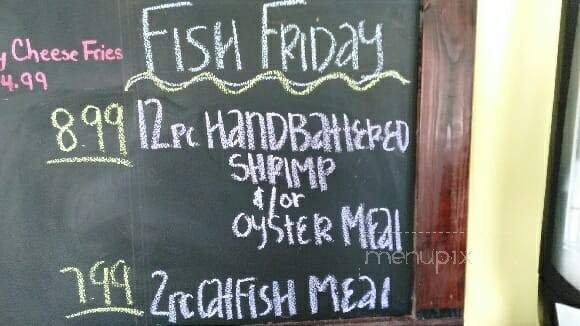 Fish Friday
y Cheese Fries
4.99
8.99 12pc HandBattered
Shrimp
&/or
Oyster Meal
menupix
7.99 2pc Catfish Meal